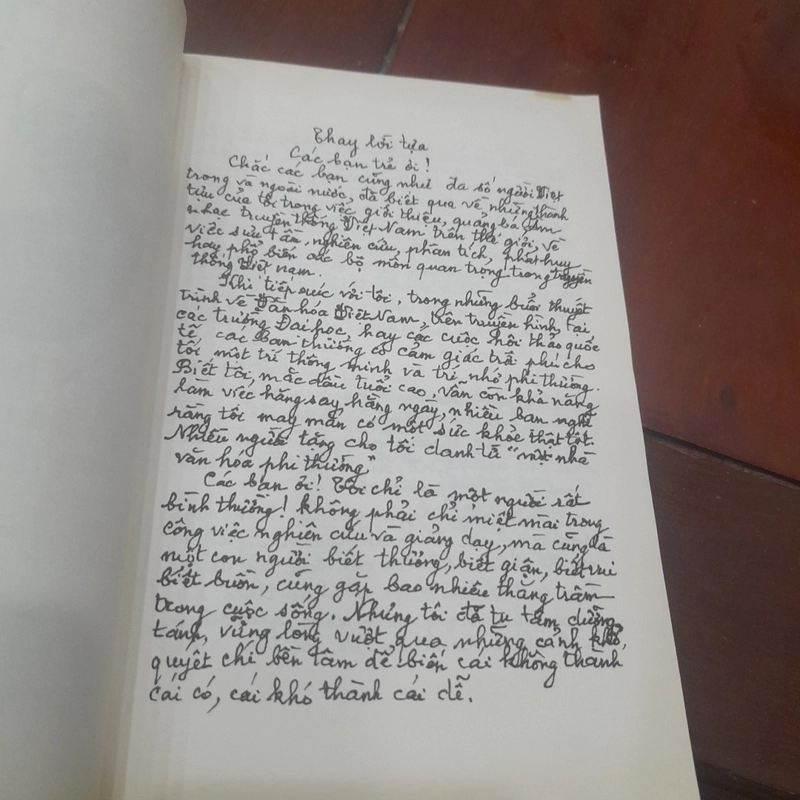 Thay lời tựa
Các bạn trẻ ơi!
Chắc các bạn cũng như đa số người Việt
trong và ngoài nước, đã biết qua về những thành
tựu của tôi trong việc giới thiệu, quảng bá âm
nhạc truyền thống Việt Nam trên thế giới, về
việc sưu tầm, nghiên cứu, phân tích, phát huy
hay phổ biến các bộ môn quan trọng trong truyền
thống Việt nam.
Khi tiếp xúc với tôi, trong những buổi thuyết
trình về Văn hóa Việt Nam, trên truyền hình, tại
các trường Đại học, hay các cuộc hội thảo quốc
tế, các bạn thường có cảm giác trời phú cho
tôi, một trí thông minh và trí nhớ phi thường.
Biết tôi, mặc dầu tuổi cao, vẫn còn khả năng
làm việc hăng say, hằng ngày, nhiều bạn nghĩ
rằng tôi may mắn có một sức khỏe thật tốt.
Nhiều người tặng cho tôi danh từ "một nhà
văn hóa phi thường"
Các bạn ơi! Tôi chỉ là một người rất
bình thường! không phải chỉ miệt mài trong
công việc nghiên cứu và giảng dạy, mà cũng là
một con người biết thương, biết giận, biết vui
biết buồn, cũng gặp bao nhiêu thăng trầm
trong cuộc sống. Nhưng tôi đã tu tâm, dưỡng
tánh, vững lòng vượt qua những cảnh khổ,
quyết chí bền tâm để biến cái không thành
cái có, cái khó thành cái dễ.